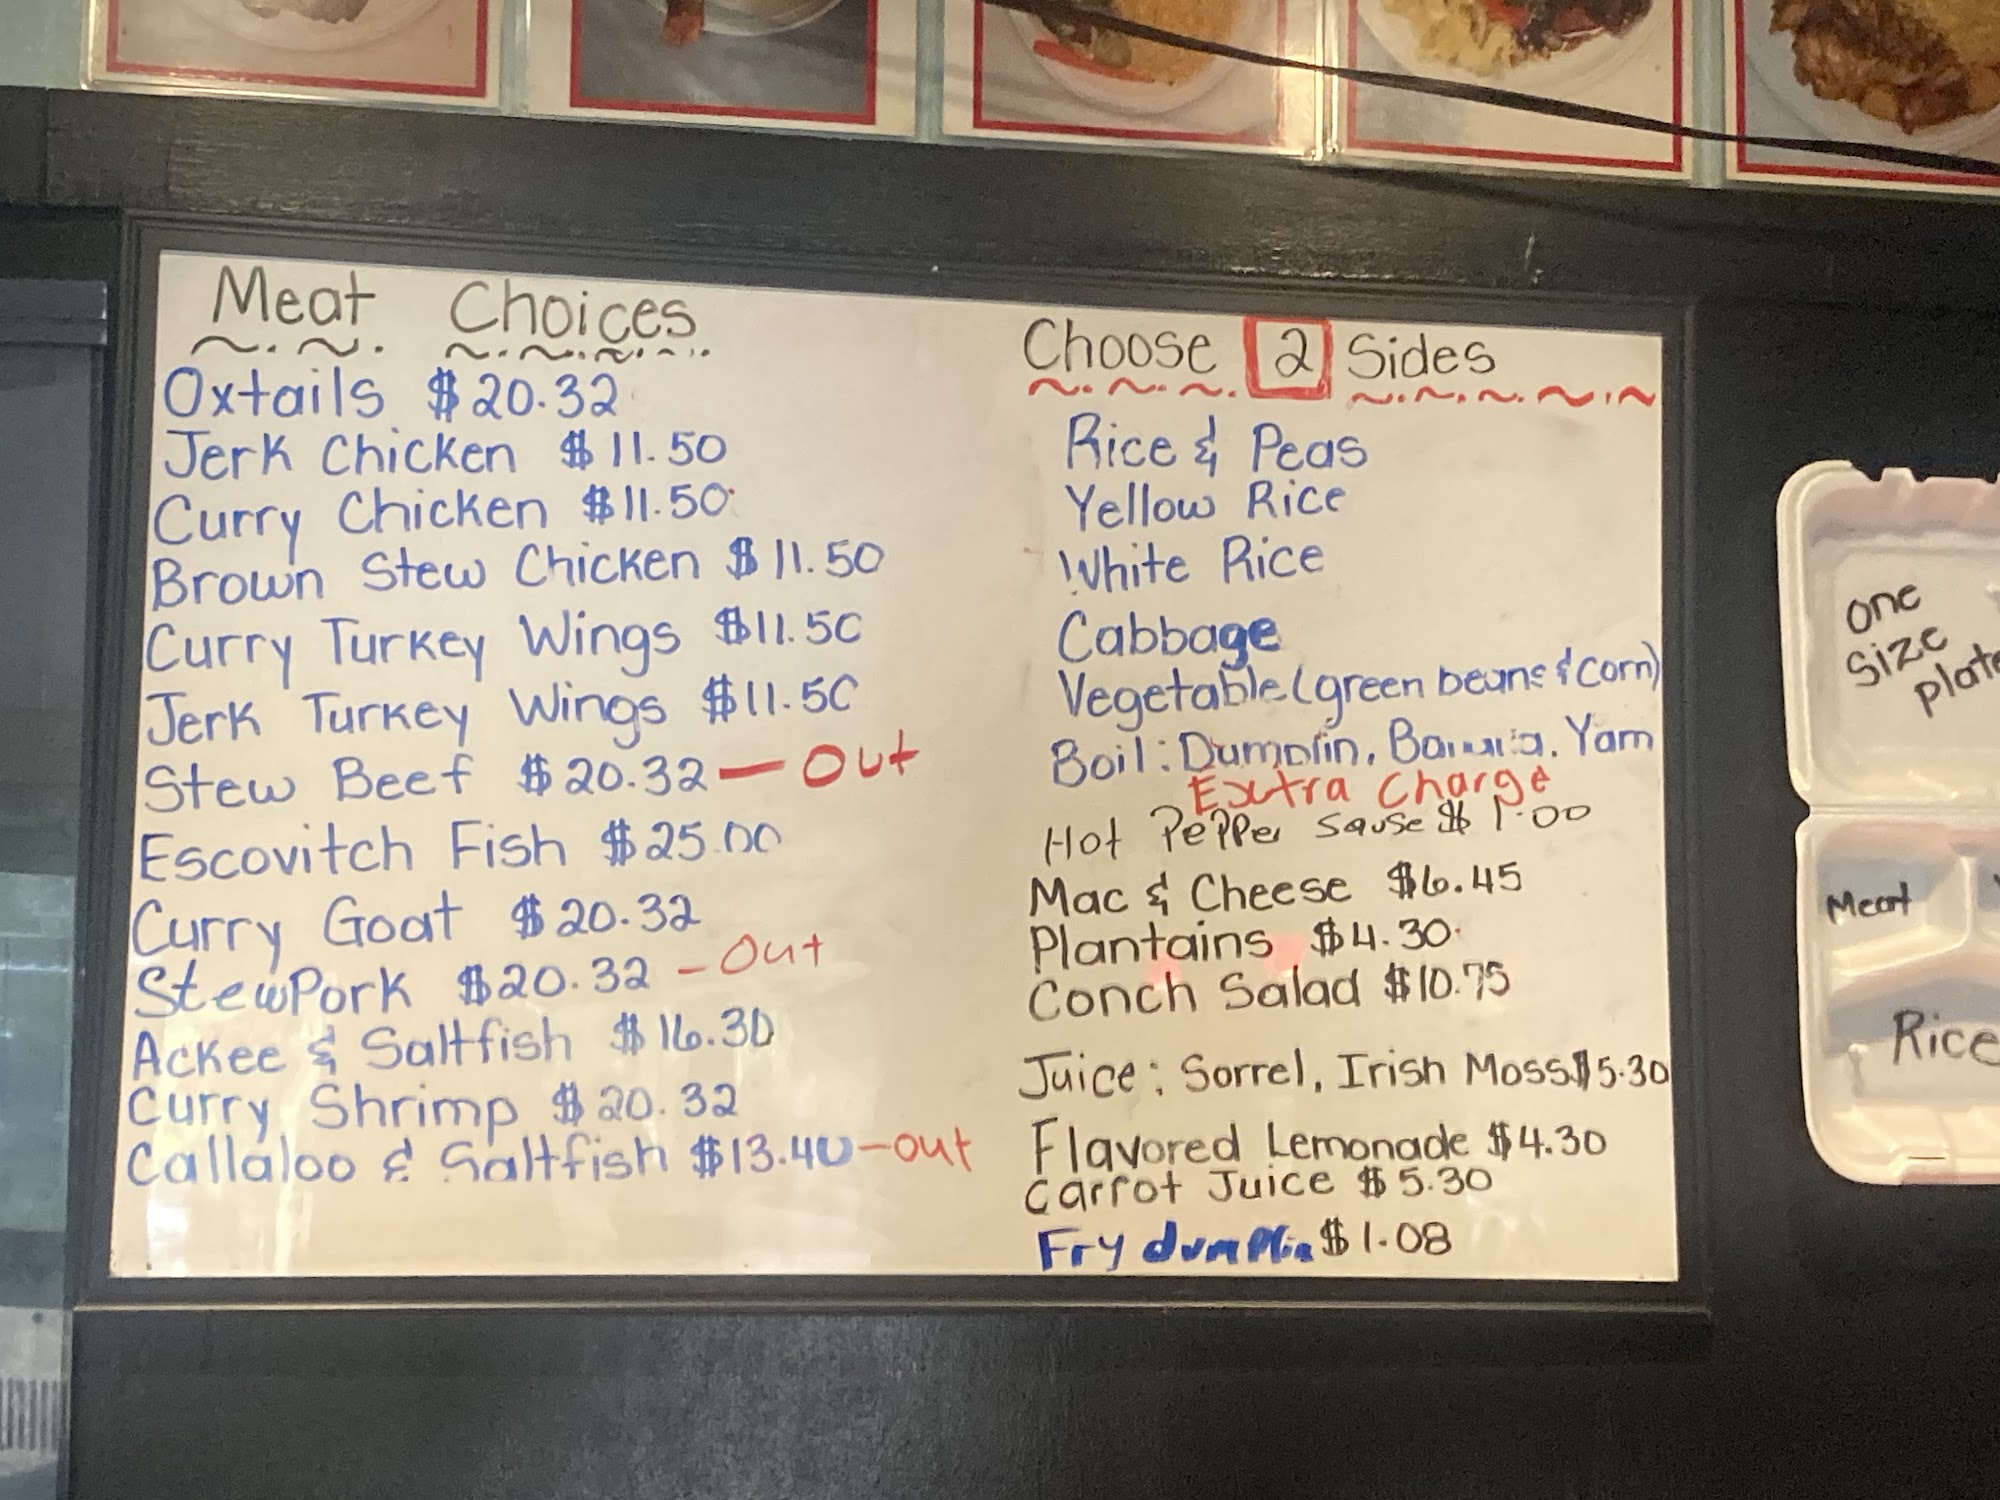 Meat Choices
Oxtails $20.32
Jerk Chicken $11.50
Curry Chicken $11.50
Brown Stew Chicken $11.50
Curry Turkey Wings $11.50
Jerk Turkey Wings $11.50
Stew Beef $20.32 — Out
Escovitch Fish $25.00
Curry Goat $20.32
Stew Pork $20.32 - Out
Ackee & Saltfish $16.30
Curry Shrimp $20.32
Callaloo & Saltfish $13.40 - out
Choose 2 Sides
Rice & Peas
Yellow Rice
White Rice
Cabbage
Vegetable (green beans & corn)
Boil: Dumplin, Banana, Yam
Extra Charge
Hot Pepper Sause $1.00
Mac & Cheese $6.45
Plantains $4.30
Conch Salad $10.75
Juice: Sorrel, Irish Moss $5.30
Flavored Lemonade $4.30
Carrot Juice $5.30
Fry dumplin $1.08
one
size
plate
Meat
Rice